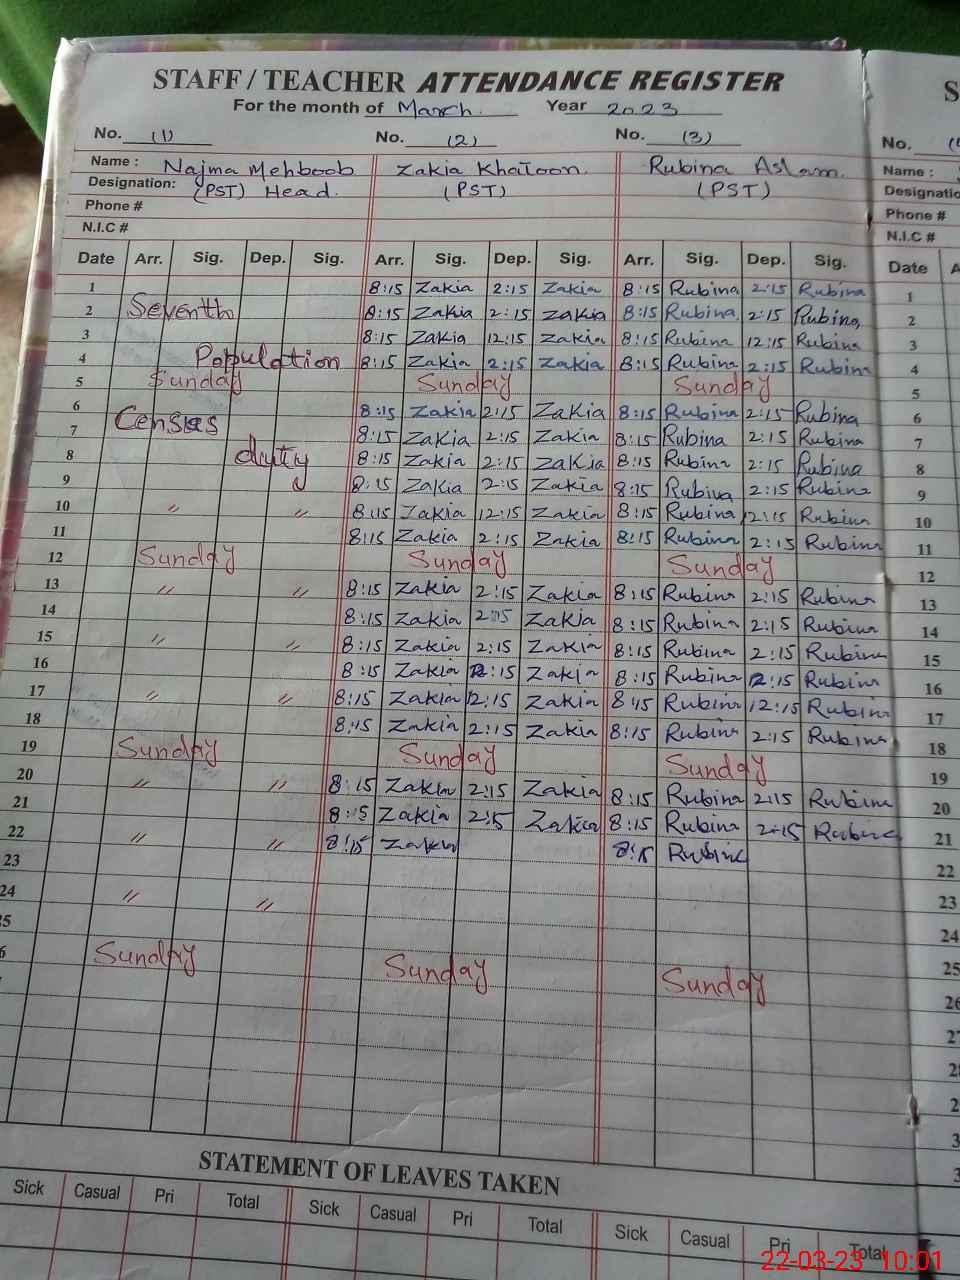 STAFF / TEACHER ATTENDANCE REGISTER
For the month of March. Year 2023
No. (1) No. (2) No. (3) No.
Name : Najma Mehboob Zakia Khatoon. Rubina Aslam. Name :
Designation: (PST) Head. (PST) (PST)
Phone # Phone #
N.I.C # N.I.C #
Date Arr. Sig. Dep. Sig. Arr. Sig. Dep. Sig. Arr. Sig. Dep. Sig. Date
1 8:15 Zakia 2:15 Zakia 8:15 Rubina 2:15 Rubina 1
2 Seventh 8:15 Zakia 2:15 Zakia 8:15 Rubina 2:15 Rubina 2
3 8:15 Zakia 12:15 Zakia 8:15 Rubina 12:15 Rubina 3
4 Population 8:15 Zakia 2:15 Zakia 8:15 Rubina 2:15 Rubina 4
5 Sunday Sunday Sunday 5
6 Census 8:15 Zakia 2:15 Zakia 8:15 Rubina 2:15 Rubina 6
7 8:15 Zakia 2:15 Zakia 8:15 Rubina 2:15 Rubina 7
8 duty 8:15 Zakia 2:15 Zakia 8:15 Rubina 2:15 Rubina 8
9 8:15 Zakia 2:15 Zakia 8:15 Rubina 2:15 Rubina 9
10 " " 8:15 Zakia 12:15 Zakia 8:15 Rubina 12:15 Rubina 10
11 8:15 Zakia 2:15 Zakia 8:15 Rubina 2:15 Rubina 11
12 Sunday Sunday Sunday 12
13 " " 8:15 Zakia 2:15 Zakia 8:15 Rubina 2:15 Rubina 13
14 8:15 Zakia 2:15 Zakia 8:15 Rubina 2:15 Rubina 14
15 " " 8:15 Zakia 2:15 Zakia 8:15 Rubina 2:15 Rubina 15
16 8:15 Zakia 2:15 Zakia 8:15 Rubina 2:15 Rubina 16
17 " " 8:15 Zakia 12:15 Zakia 8:15 Rubina 12:15 Rubina 17
18 8:15 Zakia 2:15 Zakia 8:15 Rubina 2:15 Rubina 18
19 Sunday Sunday Sunday 19
20 " " 8:15 Zakia 2:15 Zakia 8:15 Rubina 2:15 Rubina 20
21 8:15 Zakia 2:15 Zakia 8:15 Rubina 2:15 Rubina 21
22 " " 8:15 Zakia 8:15 Rubina 22
23 23
24 " " 24
25
Sunday Sunday Sunday 26
STATEMENT OF LEAVES TAKEN
Sick Casual Pri Total Sick Casual Pri Total Sick Casual Pri Total
22-03-23 10:01